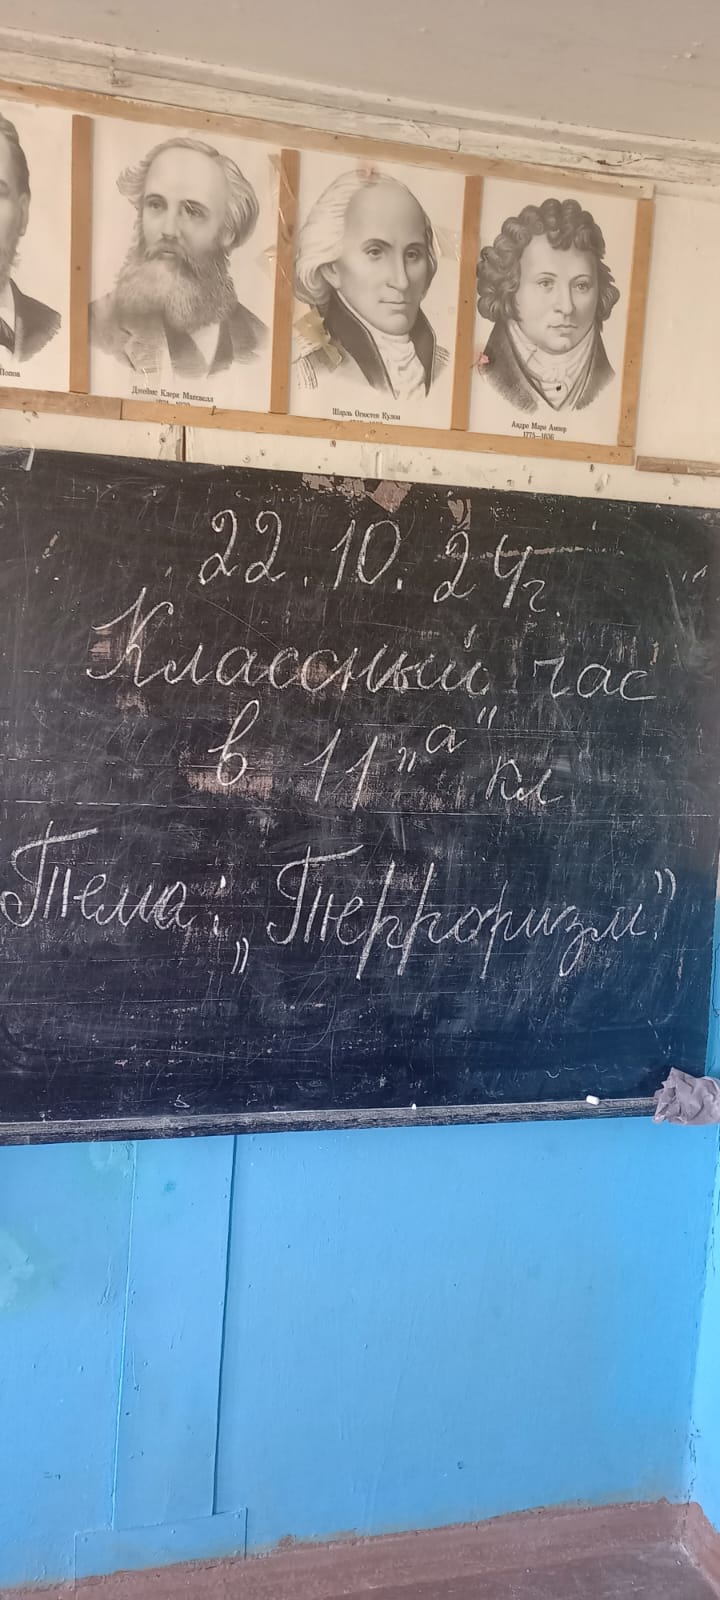 Попов
Джеймс Клерк Максвелл
Шарль Огюстен Кулон
Андре Мари Ампер
1775—1836
22.10.24г.
Классный час
в 11 „а" кл
Тема: „Терроризм"